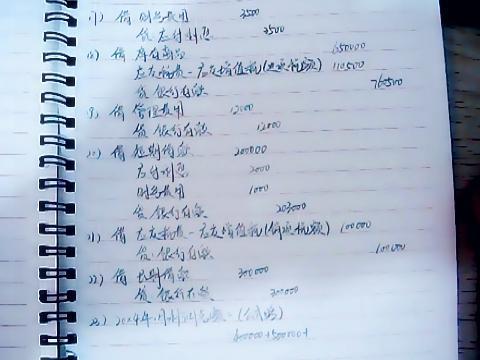 17) 借 财务费用 3500
贷 应付利息 3500
18) 借 库存商品 650000
应交税费-应交增值税(进项税额) 110500
贷 银行存款 760500
19) 借 管理费用 12000
贷 银行存款 12000
20) 借 短期借款 200000
应付利息 2000
财务费用 1000
贷 银行存款 203000
21) 借 应交税费-应交增值税(销项税额) 100000
贷 银行存款 100000
22) 借 长期借款 300000
贷 银行存款 300000
23) 2014年
600000+500000+